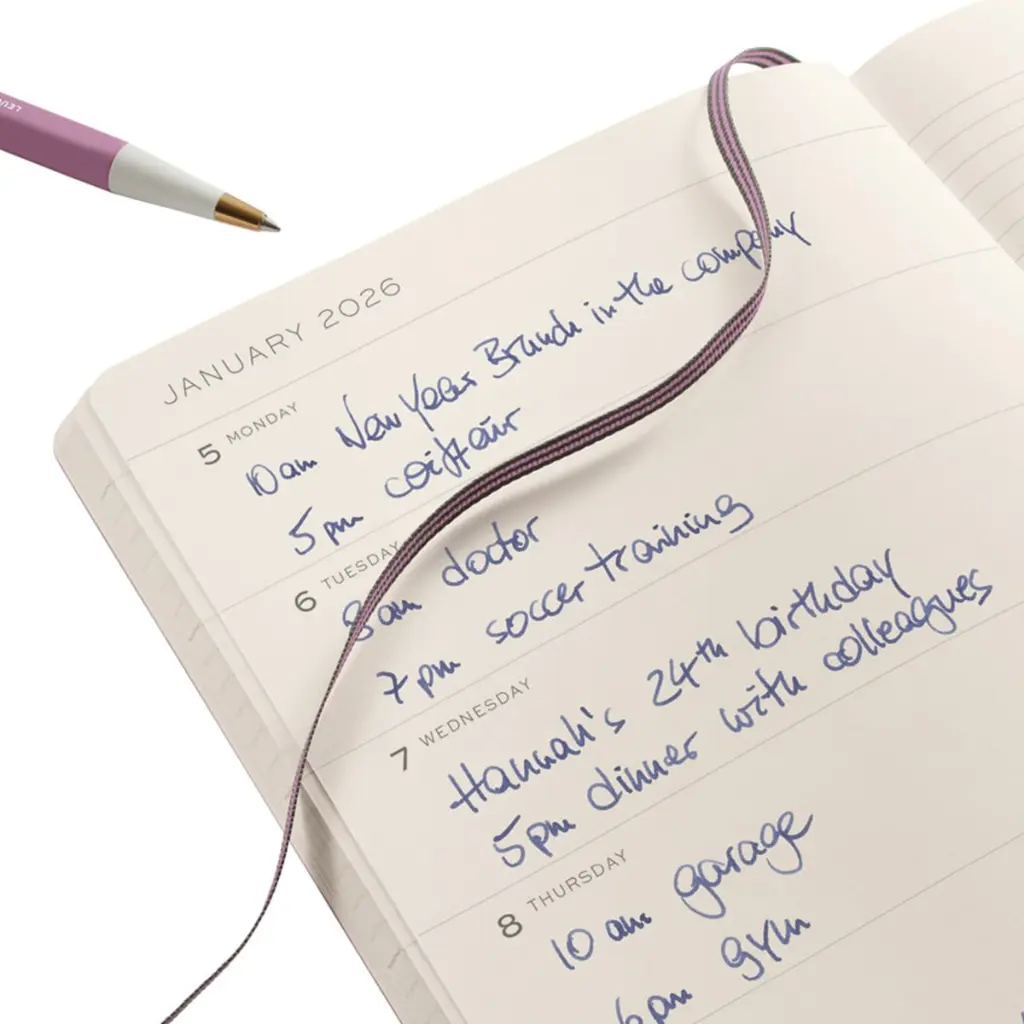 JANUARY 2026
5 MONDAY
10am New Year Brunch in the company
5 pm coiffeur
6 TUESDAY
8am doctor
7 pm soccer training
7 WEDNESDAY
Hannah's 24th birthday
5pm dinner with colleagues
8 THURSDAY
10 am garage
6pm gym